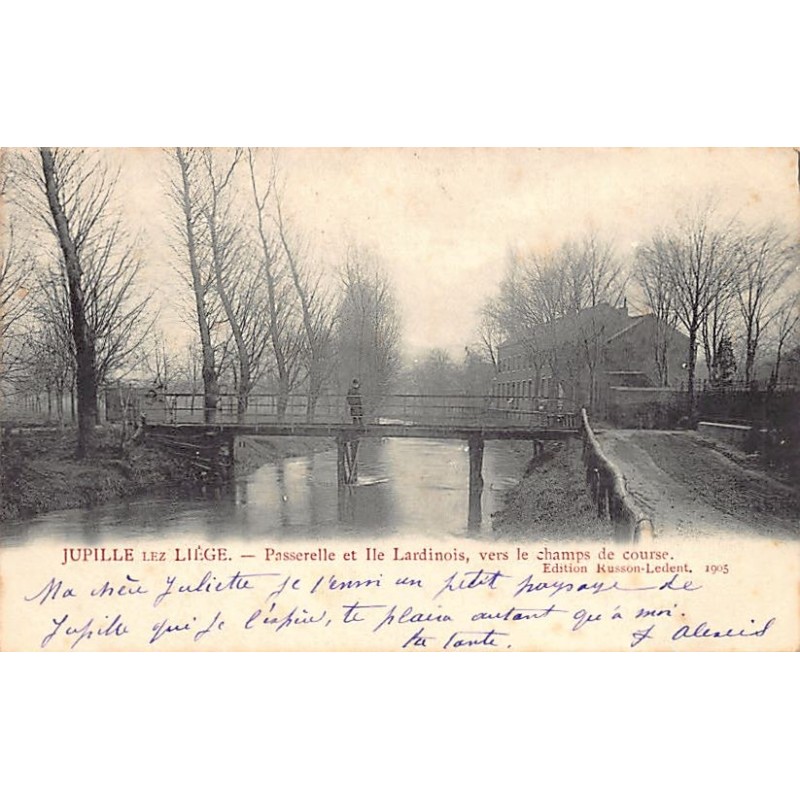 JUPILLE LEZ LIÉGE. — Passerelle et Ile Lardinois, vers le champs de course.
Edition Russon-Ledent, 1905
Ma chère Juliette je t'envoi un petit paysage de
Jupille qui je l'éspère, te plaira autant qu'à moi.
ta tante. J Alexis